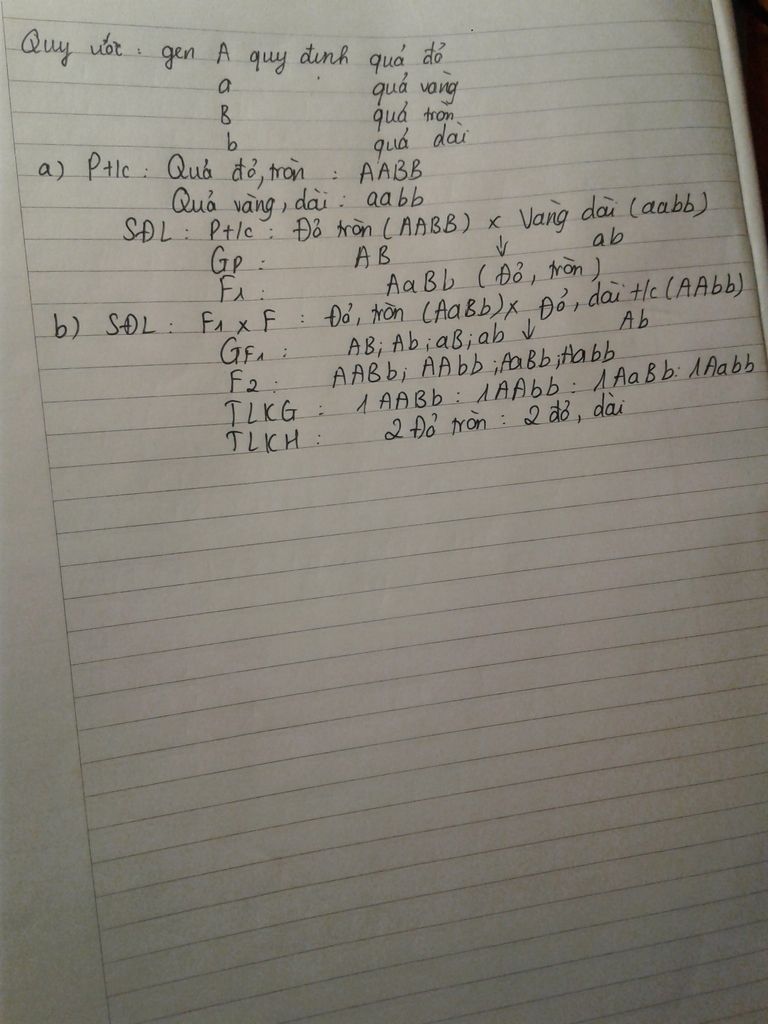 Quy ước : gen A quy định quả đỏ
a quả vàng
B quả tròn
b quả dài
a) Pt/c : Quả đỏ, tròn : AABB
Quả vàng, dài : aabb
SĐL : Pt/c : Đỏ tròn (AABB) x Vàng dài (aabb)
GP : AB ↓ ab
F1 : AaBb (Đỏ, tròn)
b) SĐL : F1 x F : Đỏ, tròn (AaBb) x Đỏ, dài t/c (AAbb)
GF1 : AB; Ab; aB; ab ↓ Ab
F2 : AABb; AAbb; AaBb; Aabb
TLKG : 1AABb : 1AAbb : 1AaBb : 1Aabb
TLKH : 2 Đỏ tròn : 2 đỏ, dài